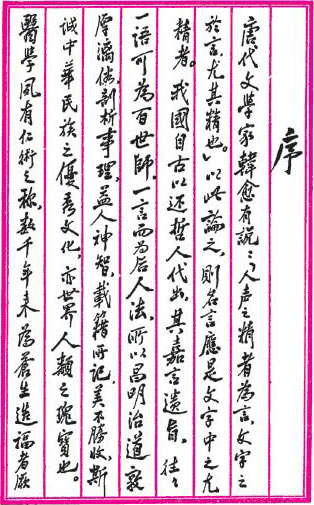 序
唐代文學家韓愈有説：「人声之精者為言，文字之
於言，尤其精也。」以此論之，則名言應是文字中之尤
精者。我國自古以還，哲人代出，其嘉言遺旨，往々
一語可為百世師，一言而為后人法。所以昌明治道，敦
厚漓俗，剖析事理，益人神智，載籍所記，美不勝收，斯
誠中華民族之優秀文化，亦世界人類之瑰寶也。
醫學夙有仁術之称，数千年来為蒼生造福者厥